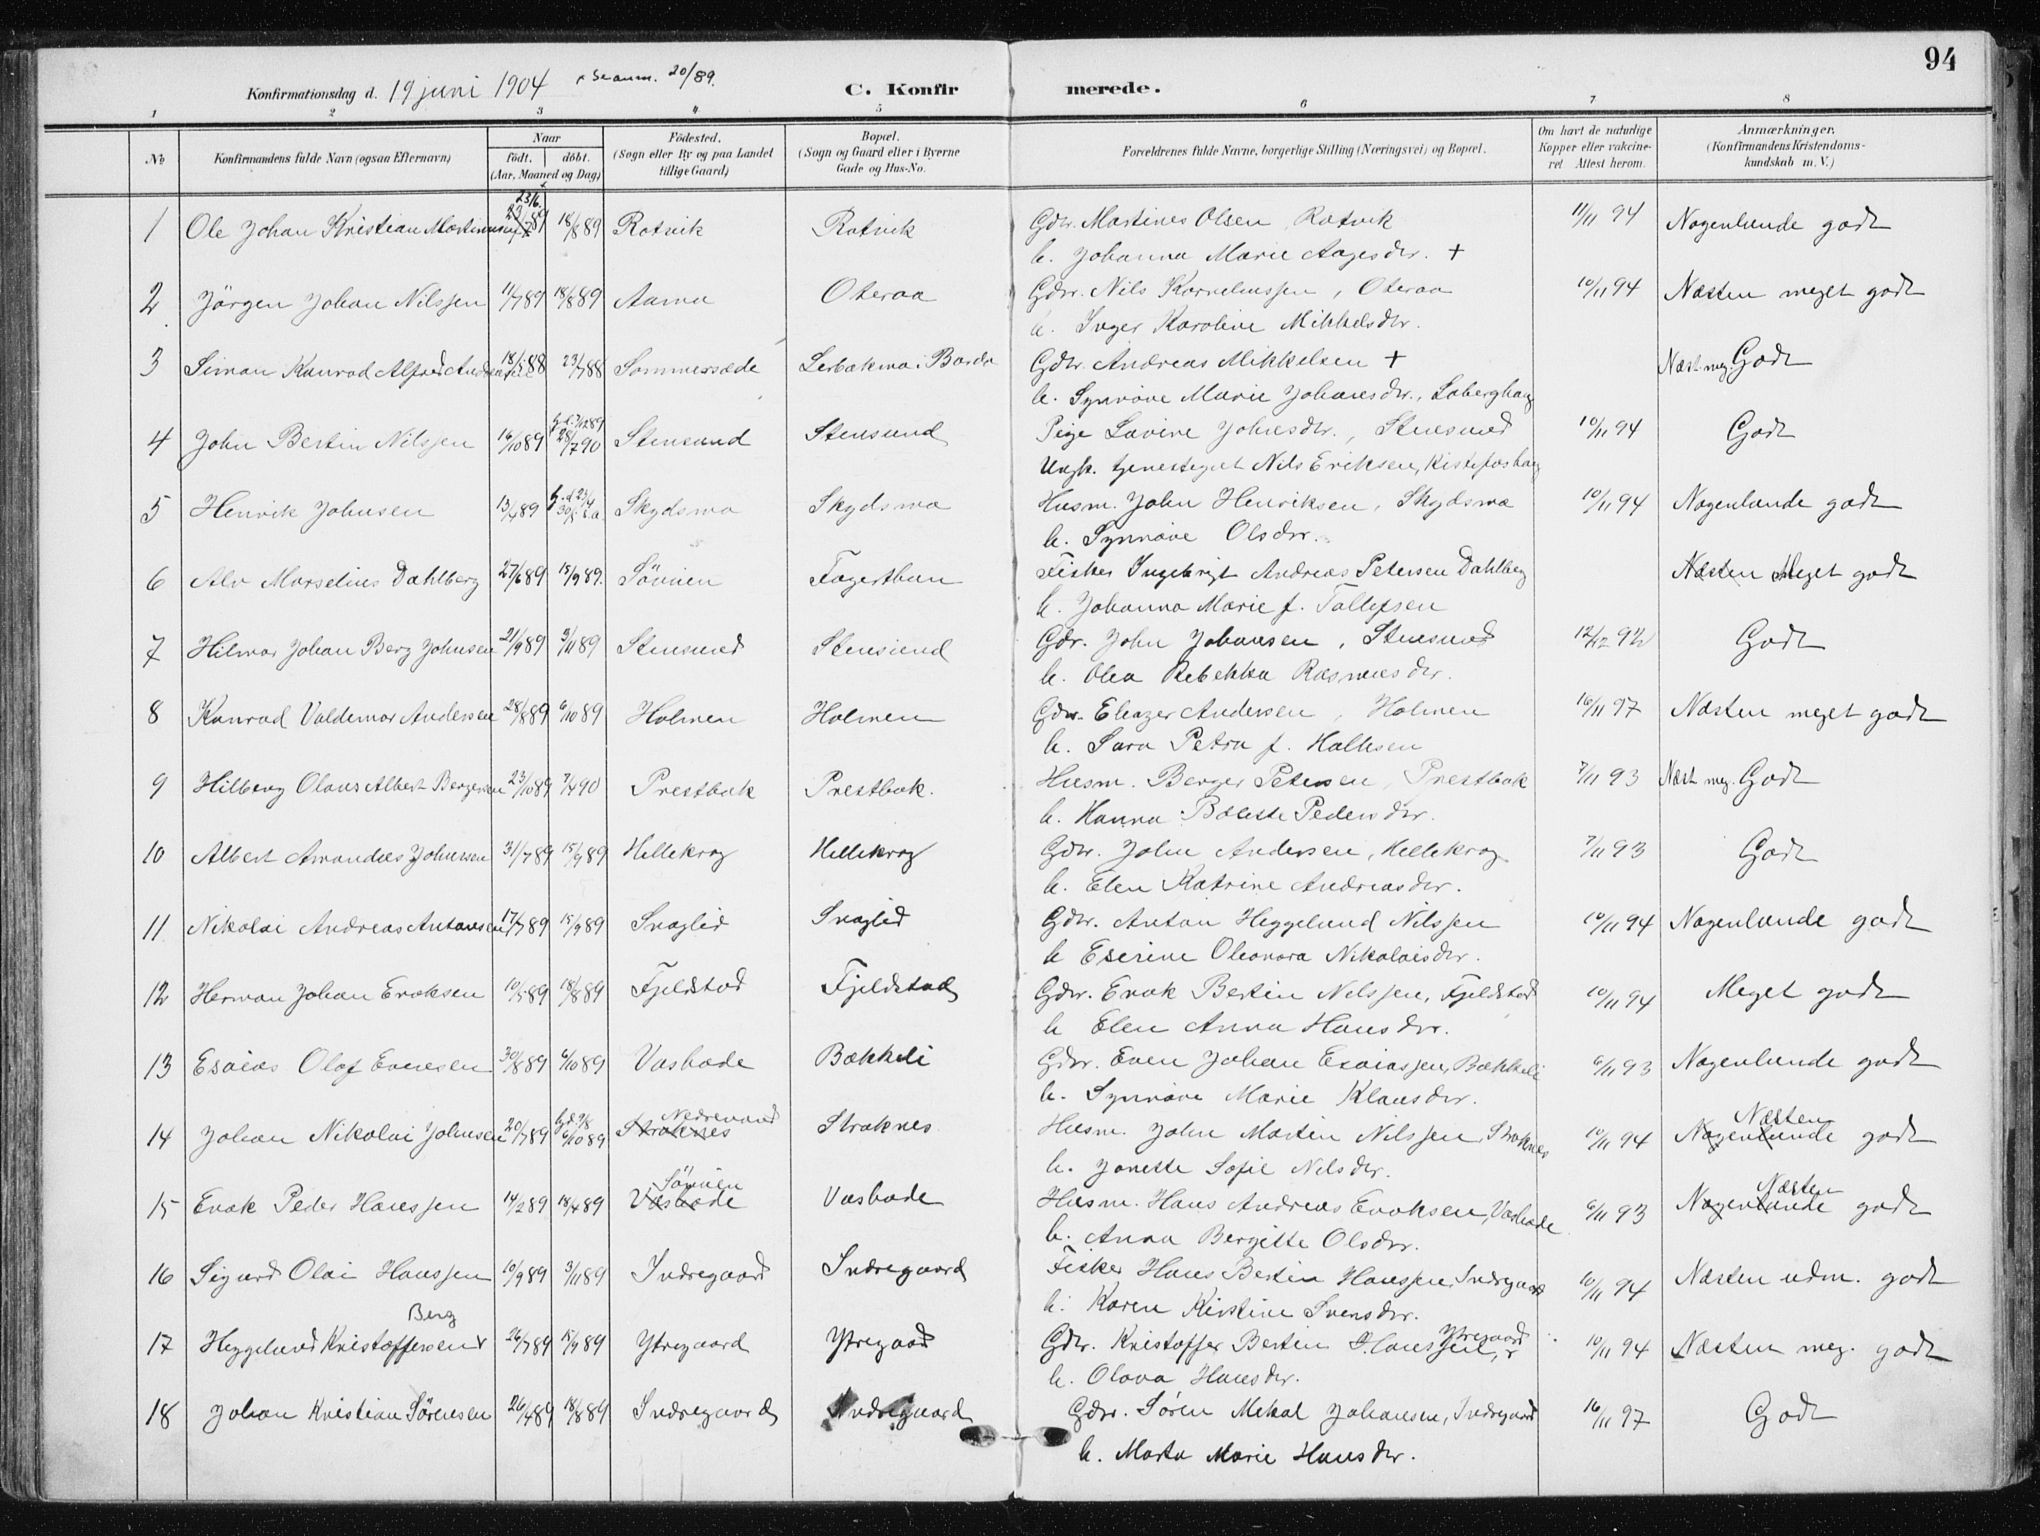 94
Konfirmationsdag d. 19 juni 1904 20/89.
C. Konfirmerede.
1 2 3 4 5 6 7 8
No
Konfirmandens fulde Navn (ogsaa Efternavn)
Naar
födt. döbt.
(Aar, Maaned og Dag)
Födested.
(Sogn eller By og paa Landet
tillige Gaard)
Bopæl.
(Sogn og Gaard eller i Byerne
Gade og Hus-No.
Forældrenes fulde Navne, borgerlige Stilling (Næringsvei) og Bopæl.
Om havt de naturlige
Kopper eller vakcine-
ret Attest herom.
Anmærkninger.
(Konfirmandens Kristendoms-
kundskab m. V.)
23/6.
1 Ole Johan Kristian Martinussen 18/8 89 Rotvik Rotvik Gdbr. Martines Olsen, Rotvik 11/11 94 Nogenlunde godt
h. Johanna Marie Aagesdtr. +
2 Jörgen Johan Nilssen 11/7 89 18/8 89 Aama Oteraa Gdbr. Nils Korneliussen, Oteraa 10/11 94 Næsten meget godt
h. Inger Karoline Mikkelsdtr.
3 Simon Konrad Alfred Andreassen 18/5 88 23/7 88 Sommersæde Lerbakmo i Bardo Gdbr. Andreas Mikkelsen + Næst. meg. Godt
h. Synnöve Marie Johansdtr., Soberghaug
4 John Bertin Nilssen 16/10 89 28/7 90 Stensund Stensund Pige Lavine Johnsdtr., Stensund 10/11 94 Godt
Ungk. tjenestegut Nils Eriksen, Kistefoshaug
5 Henrik Johnsen 13/4 89 Skydsmo Skydsmo Husm. John Henriksen, Skydsmo 10/11 94 Nogenlunde godt
h. Synnöve Olsdtr.
6 Alv Marselius Dahlberg 27/6 89 15/9 89. Sövien Fagerthun Fisker Ingebrigt Andreas Petersen Dahlberg Næsten Meget godt
h. Johanna Marie f. Tollefsen
7 Hilmar Johan Berg Johnsen 21/9 89 3/11 89 Stensund Stensund Gdr. John Johansen, Stensund 12/12 92 Godt
h. Olea Rebekka Rasmusdtr.
8 Konrad Valdemar Andersen 28/8 89 6/10 89 Holmen Holmen Gdbr. Eleazer Andersen, Holmen 16/11 97 Næsten meget godt
h. Sara Petra f. Halksen
9 Hilberg Olaus Albert Bergersen 23/10 89 7/4 90 Prestbak Prestbak. Husm. Berger Petersen, Prestbak 7/11 93 Næst meg. Godt
h. Hanna Bolette Pedersdtr.
10 Albert Amandus Johnsen 31/7 89 15/9 89 Hellekrog Hellekrog Gdbr. John Andersen, Hellekrog 7/11 93 Godt
h. Elen Katrine Andreasdtr.
11 Nikolai Andreas Antonsen 17/7 89 15/9 89 Svoglid Svoglid Gdbr. Anton Heggelund Nilssen 10/11 94 Nogenlunde godt
h Eserine Oleonora Nikolaisdtr.
12 Herman Johan Enoksen 10/5 89 18/8 89 Fjeldstad Fjeldstad Gdbr. Enok Bertin Nilssen, Fjeldstad 10/11 94 Meget godt
h Elen Anna Hansdtr.
13 Esaias Olaf Evensen 30/8 89 6/10 89 Vasbode Bækkeli Gdbr. Even Johan Esaiassen, Bækkeli 6/11 93 Nogenlunde godt
h. Synnöve Marie Klausdtr.
Nedrevand Næsten
14 Johan Nikolai Johnsen 20/7 89 6/10 89 Straknes Straknes Husm. John Morten Nilssen, Straknes 10/11 94 Nogenlunde godt
h. Janette Sofie Nilsdtr.
Sövien Næsten
15 Enok Peder Hanssen 14/2 89 18/4 89 Vasbode Vasbode Husm. Hans Andreas Enoksen, Vasbode 6/11 93 Nogenlunde godt
h. Anna Bergitte Olsdtr.
16 Sigurd Olai Hanssen 10/9 89 3/11 89 Indregaard Indregaard Fisker Hans Bertin Hanssen, Indregaard 10/11 94 Næsten udm. godt
h. Karen Kirstine Svensdtr.
Berg Ytregaard
17 Heggelund Kristoffersen 26/7 89 15/9 89 Ytregaard Ytregaard Gdbr. Kristoffer Bertin Hanssen, 10/11 94 Næsten meg. godt
h. Olava Hansdtr.
18 Johan Kristian Sörensen 26/4 89 18/8 89 Indregaard Indregaard Gdbr. Sören Mekal Johansen, Indregaard 16/11 97 Godt
h. Marta Marie Hansdtr.